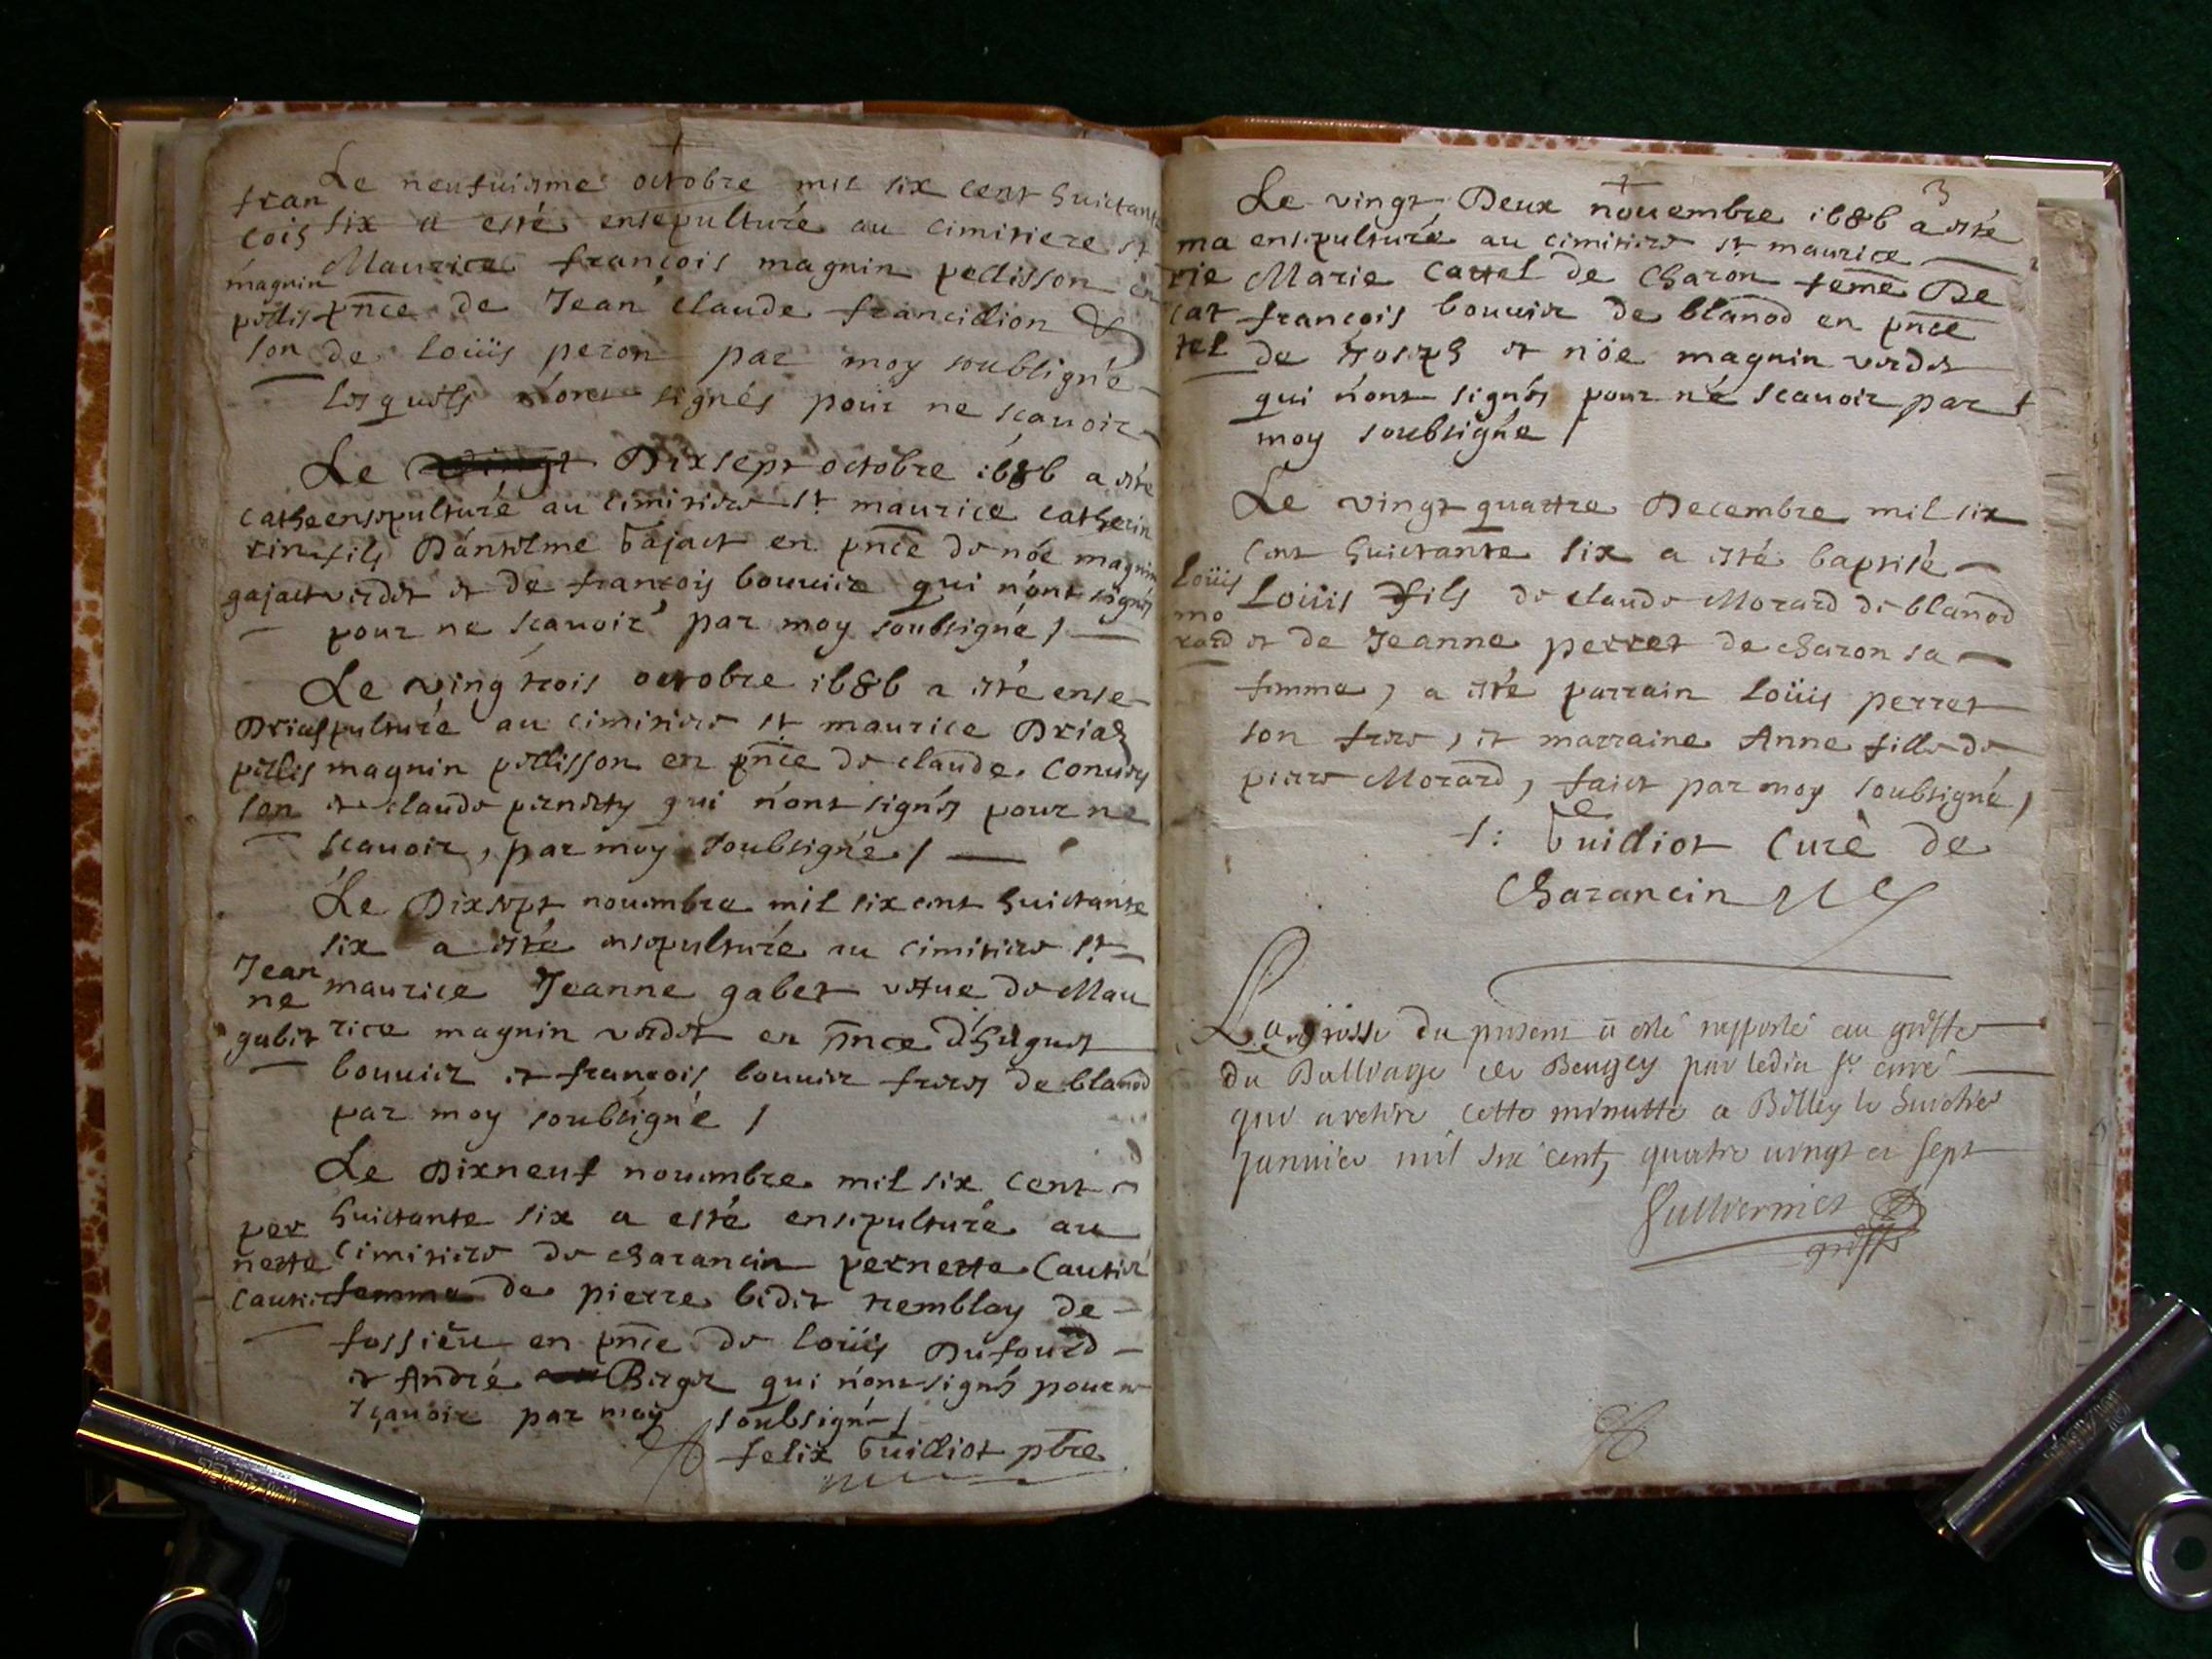 Le neufuiesme octobre mil six cent huictante
fran
cois six a esté ensepulturé au cimitiere st
magnin Maurice françois magnin pellisson en
pellis pnce de Jean claude francillion &
son de loüis peron par moy soubsigné
lesquels n'ont signés pour ne scauoir
Le Dixsept octobre 1686 a esté
cathe ensepulturé au cimitiere st maurice catherin
rin fils D'antelme Gajact en pnce de nóe magnin
gajact verdet et de françois bouuier qui n'ont signés
pour ne scauoir par moy soubsigné /
Le ving trois octobre 1686 a esté ense
Driaz pulturé au cimitiere st maurice Driaz
pellis magnin pellisson en pnce de claude
son et claude qui n'ont signés pour ne
scauoir, par moy soubsigné /
Le Dixsept nouembre mil six cent huictante
six a esté ensepulturée au cimitiere st
Jean
ne maurice Jeanne gabet vefue de Mau
gabet rice magnin verdet en pnce d'huguet
bouuier et françois bouuier freres de blanod
par moy soubsigné /
Le Dixneuf nouembre mil six cent
per huictante six a esté ensepulturée au
nette cimitiere de charancin pernette Cautier
cautier femme de pierre bidet tremblay de
fossieu en pnce de loüis Dufourd
et André Berger qui n'ont signés pour ne
scauoir par moy soubsigné /
felix Guilliot pbre
3
Le vingt Deux nouembre 1686 a esté
ma ensepulturée au cimitiere st maurice
rie Marie Cattel de Charon feme De
cat françois bouuier de blanod en pnce
tel de Joseph et nöe magnin verdet
qui n'ont signés pour ne scauoir par
moy soubsigné /
Le vingt quattre Decembre mil six
cent huictante six a esté baptisé
Loüis
mo Loüis fils de claude Morard de blanod
rard et de Jeanne perret de charon sa
femme, a esté parrain loüis perret
son frere, et marraine Anne fille de
pierre Morard, faict par moy soubsigné,
f: Guilliot Curè de
Charancin
La grosse du present a esté rapporté au greffe
du Balliage de Beugey par ledit sr curé
qui a retiré cette minutte a Belley le huictie
januier mil six cent, quatre vingt et sept
greffr